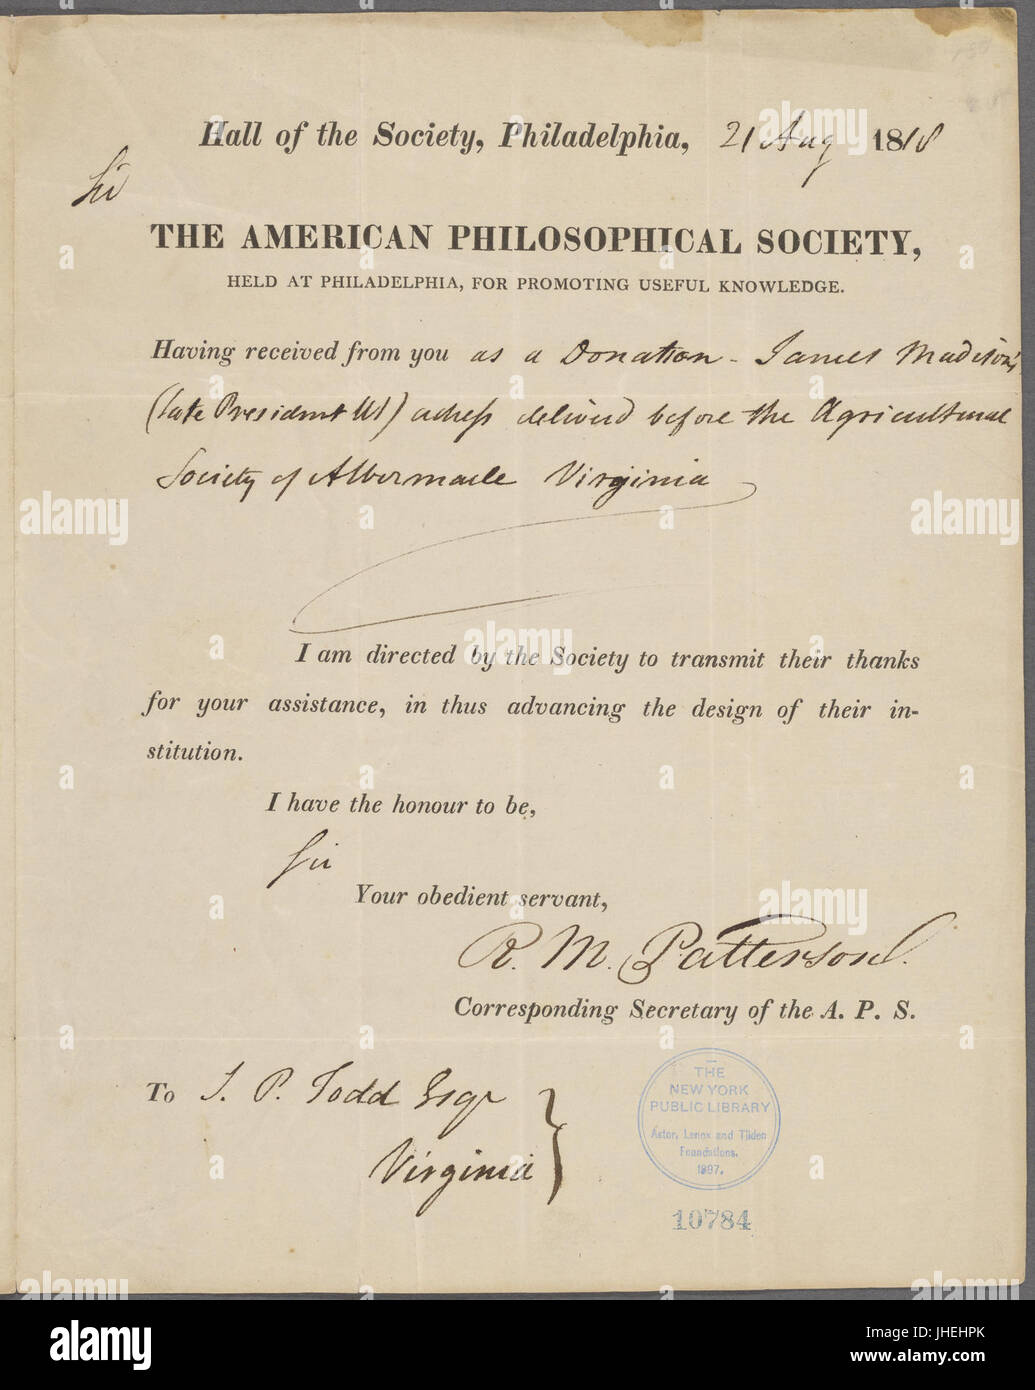 Hall of the Society, Philadelphia, 21 Aug 1818
Sir
THE AMERICAN PHILOSOPHICAL SOCIETY,
HELD AT PHILADELPHIA, FOR PROMOTING USEFUL KNOWLEDGE.
Having received from you as a Donation - James Madison's
(late President US) adress delivered before the Agricultural
Society of Albermarle Virginia
I am directed by the Society to transmit their thanks
for your assistance, in thus advancing the design of their in-
stitution.
I have the honour to be,
Sir
Your obedient servant,
R. M. Patterson.
Corresponding Secretary of the A. P. S.
To J. P. Todd Esqr
Virginia
THE
NEW YORK
PUBLIC LIBRARY
Astor, Lenox and Tilden
Foundations.
1897.
10784
alamy
Image ID: JHEHPK
www.alamy.com